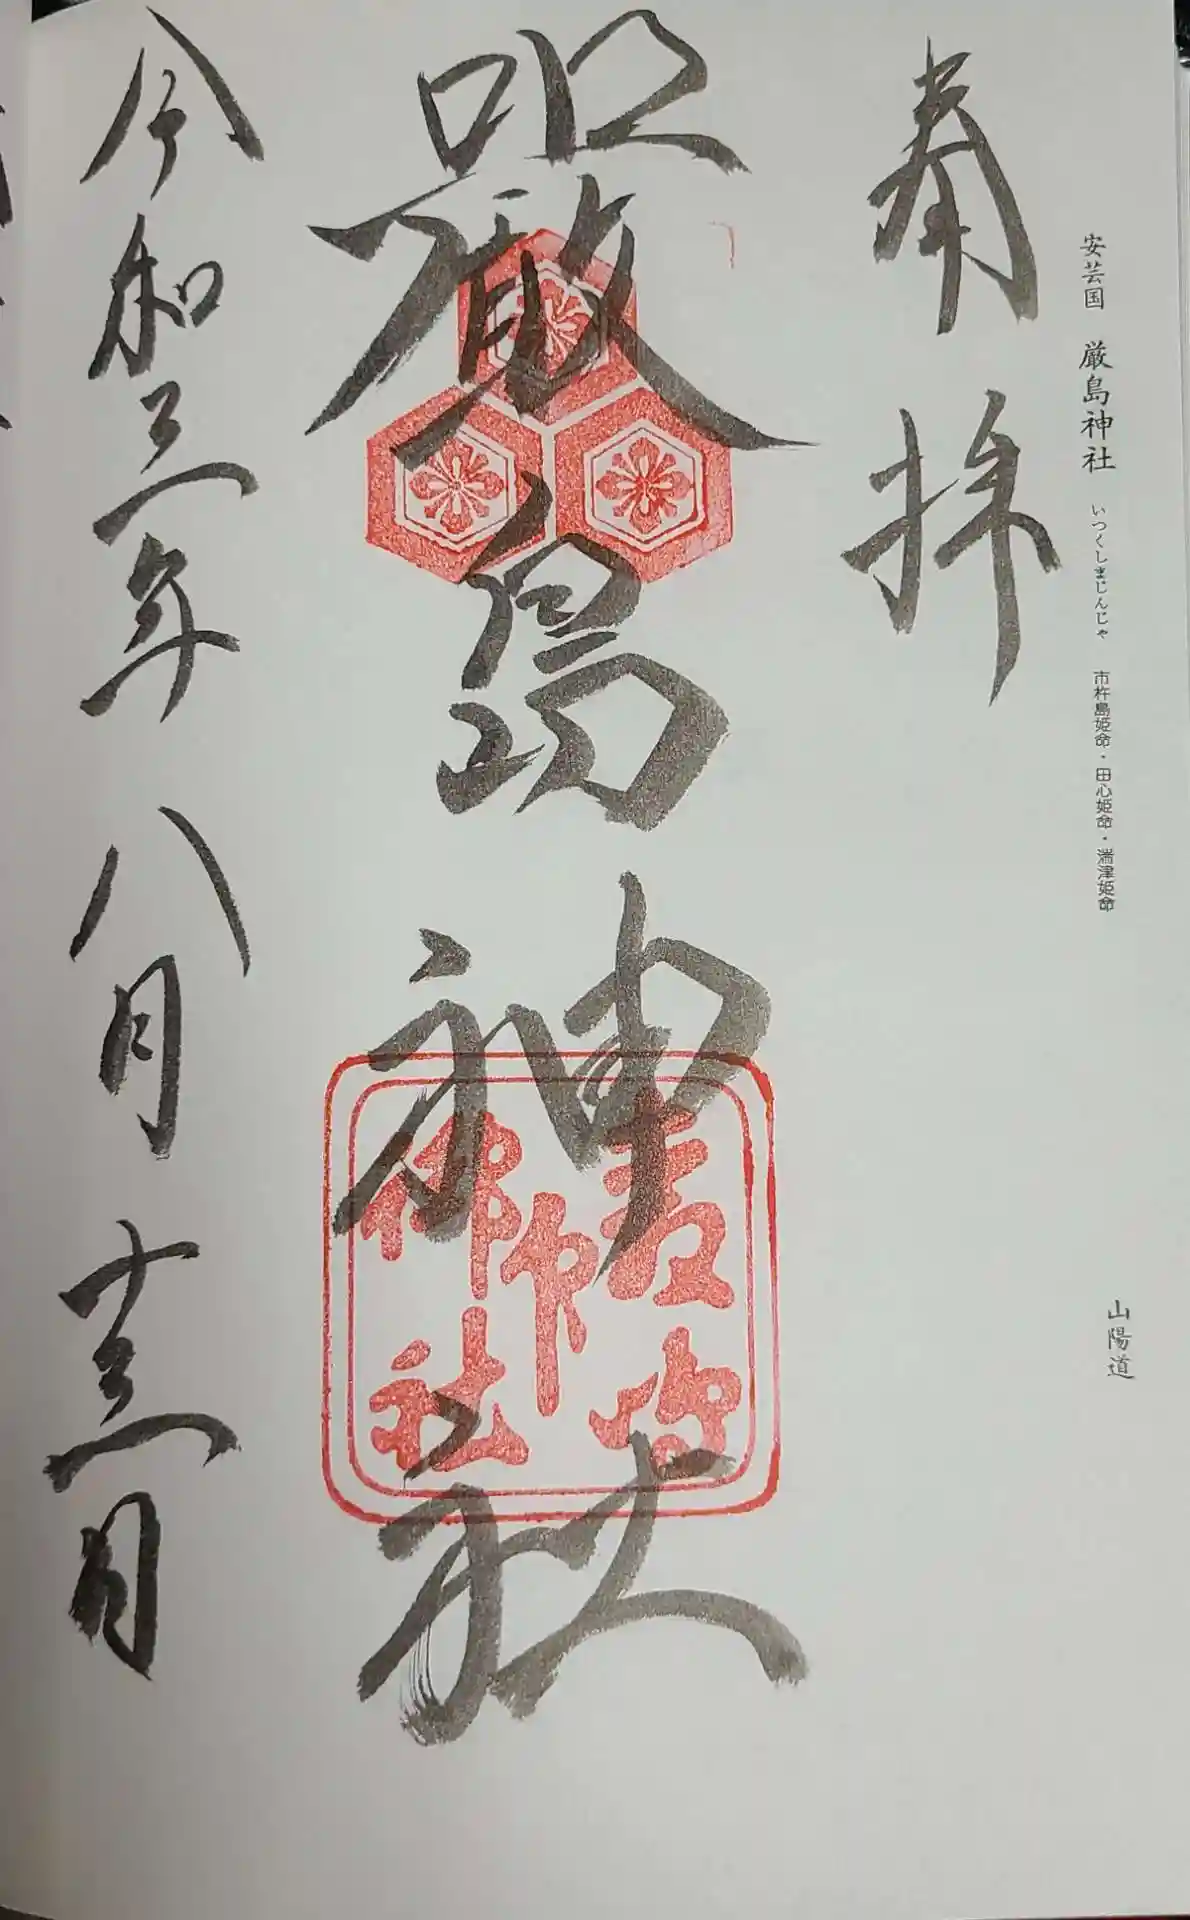 安芸国 厳島神社 いつくしまじんじゃ 市杵島姫命・田心姫命・湍津姫命
山陽道
奉拝
嚴島神社
令和三年 八月 十三日